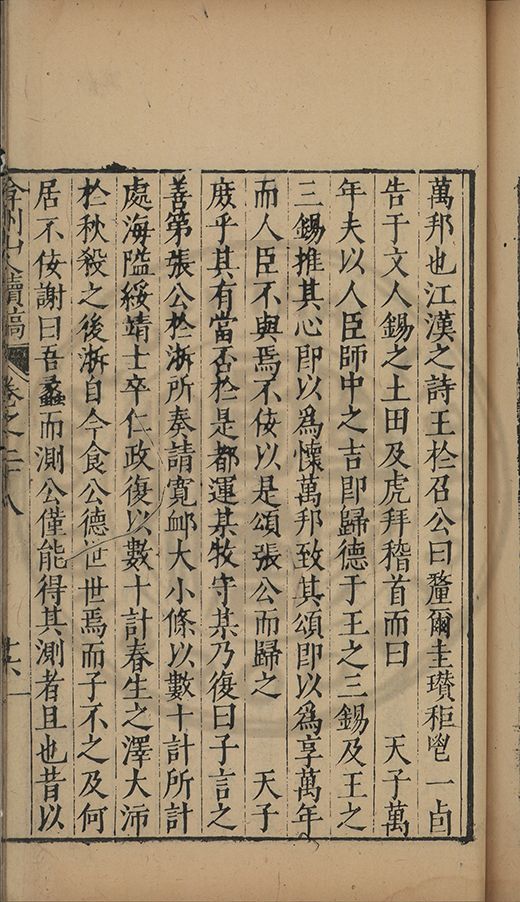 萬邦也江漢之詩王於召公曰釐爾圭瓚秬鬯一卣
告于文人錫之土田及虎拜稽首而曰　天子萬
年夫以人臣師中之吉即歸德于王之三錫及王之
三錫推其心即以為懷萬邦致其頌即以為享萬年
而人臣不與焉不佞以是頌張公而歸之　天子
庶乎其有當否於是都運某牧守某乃復曰子言之
善第張公於浙所奏請寬衈大小條以數十計所計
處海隘綏靖士卒仁政復以數十計春生之澤大沛
於秋殺之後浙自今食公德世世焉而子不之及何
居不佞謝曰吾蠡而測公僅能得其測者且也昔以
弇州山人續稿　卷之二十八